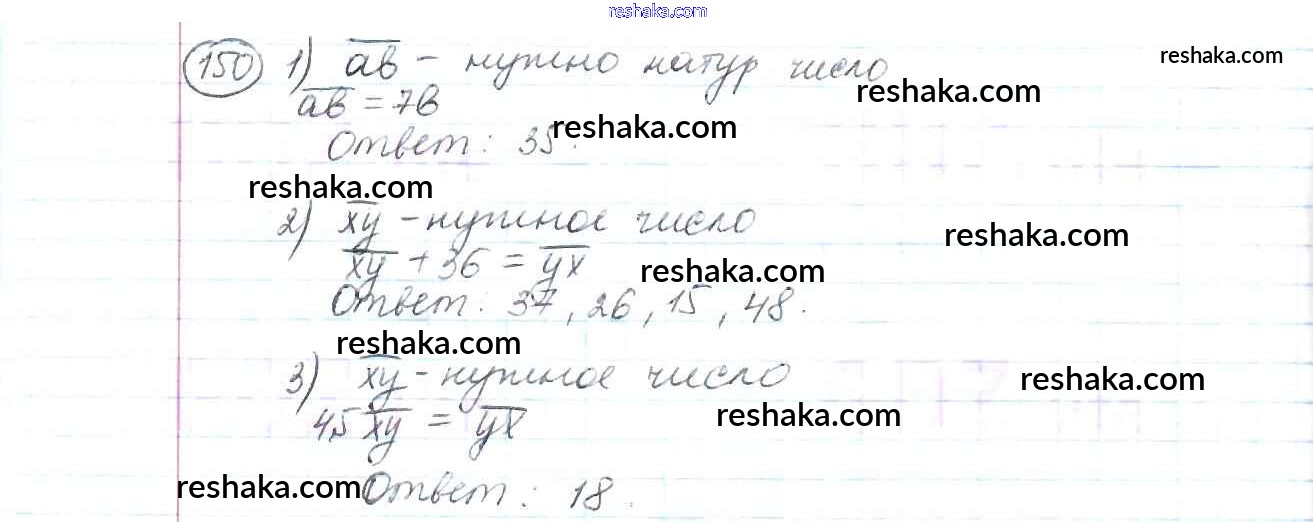 reshaka.com
150 1) ab – нужно натур число
reshaka.com
reshaka.com
ab = 7b
reshaka.com
Ответ: 35.
reshaka.com
2) xy – нужное число
reshaka.com
xy + 36 = yx
reshaka.com
Ответ: 37, 26, 15, 48.
reshaka.com
3) xy – нужное число
reshaka.com
45 xy = yx
reshaka.com
reshaka.com
Ответ: 18.